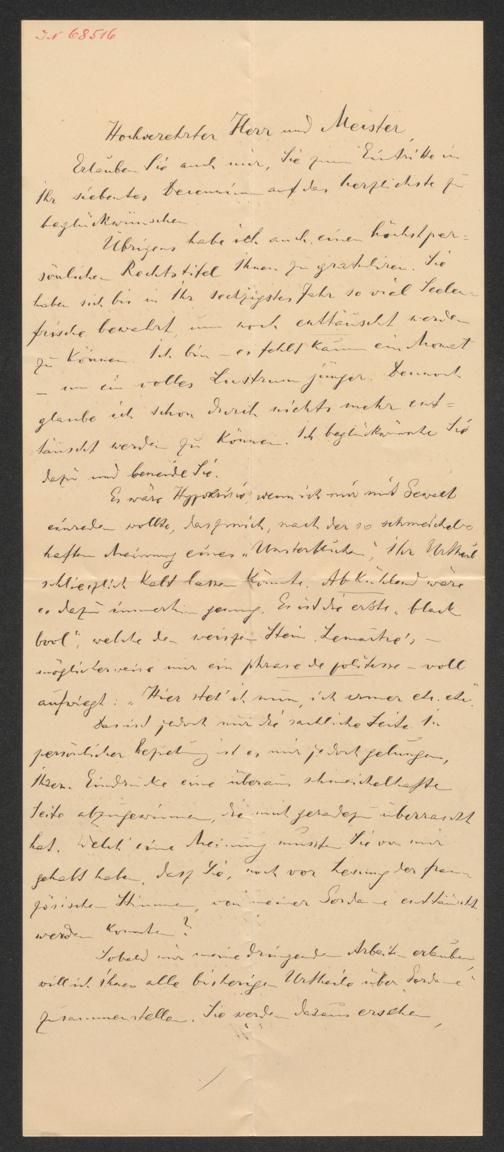 IN 68516
Hochverehrter Herr und Meister,
Erlauben Sie auch mir, Sie zum Eintritte in
Ihr siebentes Decennium auf das herzlichste zu
beglückwünschen.
Übrigens habe ich auch einen höchstper=
sönlichen Rechtstitel Ihnen zu gratuliren. Sie
haben sich bis in Ihr sechzigstes Jahr so viel Seelen
frische bewahrt, um noch enttäuscht werden
zu können. Ich bin – es fehlt kaum ein Monat
– um ein volles Lustrum jünger. Dennoch
glaube ich schon durch nichts mehr ent=
täuscht werden zu können. Ich beglückwünsche Sie
dazu und beneide Sie.
Es wäre Hypokrisie, wenn ich mir mit Gewalt
einreden wollte, dass mich, nach der so schmeichel=
haften Meinung eines „Unsterblichen", Ihr Urtheil
schliesslich kalt lassen könnte. Abkühlend wäre
es dazu immerhin genug. Es ist die erste „black
bool", welche den weissen Stein Lemaître's –
möglicherweise nur ein phrase de politesse – voll
aufwiegt: „Hier steh' ich nun, ich armer etc. etc."
Das ist jedoch nur die sachliche Seite. In
persönlicher Beziehung ist es mir jedoch gelungen,
Ihrem Eindrucke eine überaus schmeichelhafte
Seite abzugewinnen, die mich geradezu überrascht
hat. Welch' eine Meinung mussten Sie von mir
gehabt haben, dass Sie, noch vor Lesung der fran
zösischen Stimmen, von meiner Gordane enttäuscht
werden konnten?
Sobald mir meine dringenden Arbeiten erlauben
will ich Ihnen alle bisherigen Urtheile über Gordane
zusammenstellen. Sie werden daraus ersehen,